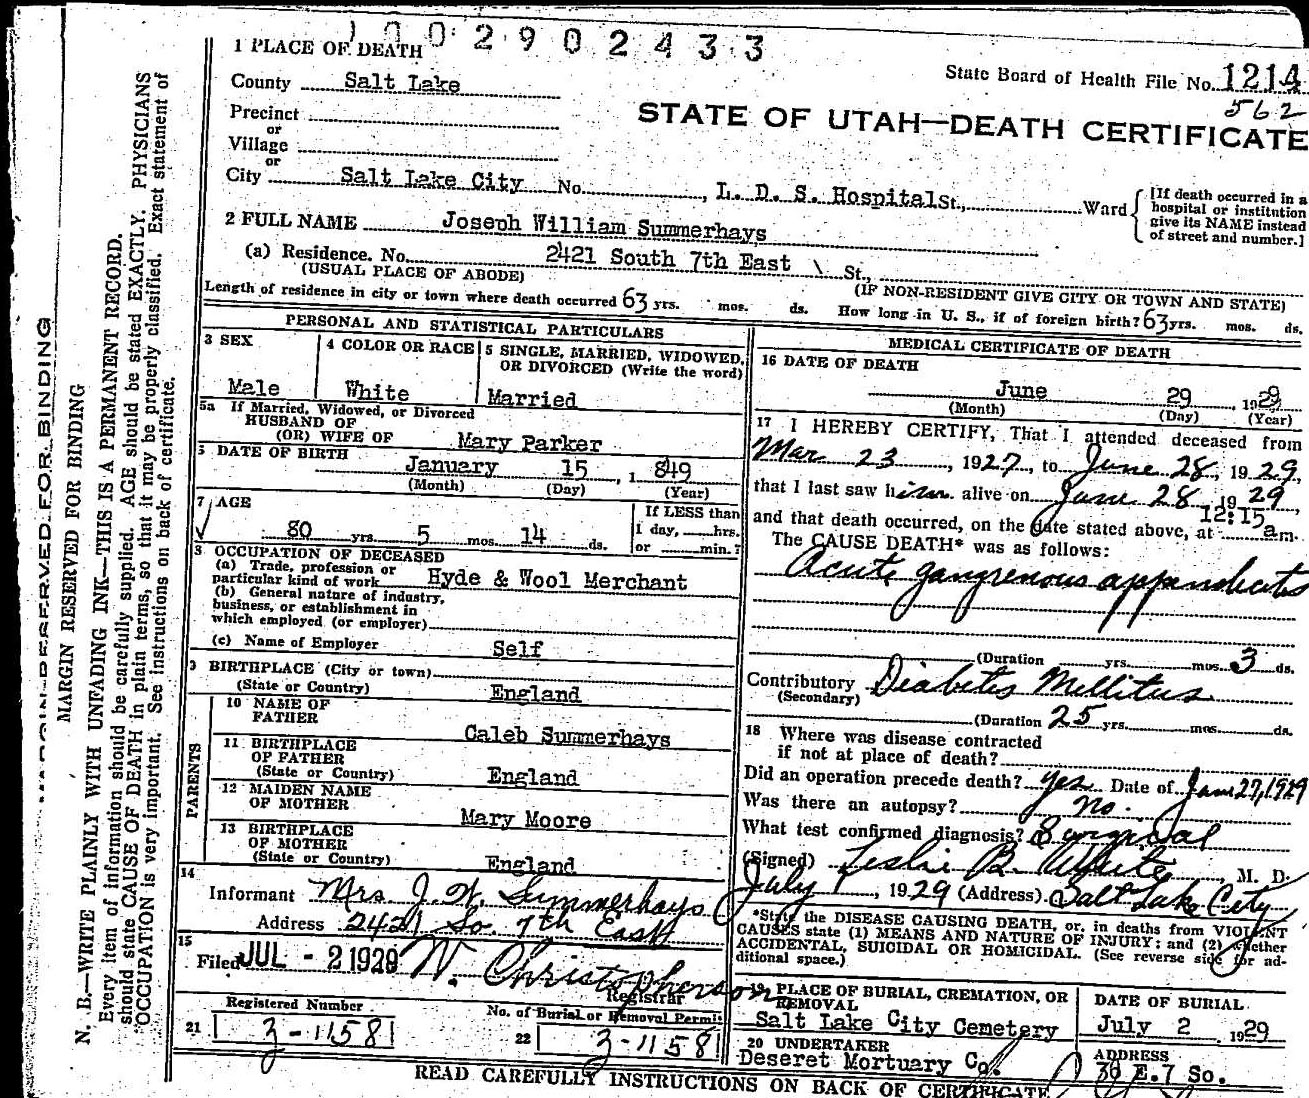 1002902433
1 PLACE OF DEATH
State Board of Health File No. 1214
562
County Salt Lake
STATE OF UTAH—DEATH CERTIFICATE
Precinct
or
Village
or
City Salt Lake City No. , L. D. S. Hospital St., Ward
[If death occurred in a
hospital or institution
give its NAME instead
of street and number.]
2 FULL NAME Joseph William Summerhays
(a) Residence. No. 2421 South 7th East St.,
(USUAL PLACE OF ABODE) (IF NON-RESIDENT GIVE CITY OR TOWN AND STATE)
Length of residence in city or town where death occurred 63 yrs. mos. ds. How long in U. S., if of foreign birth? 63 yrs. mos. ds.
PERSONAL AND STATISTICAL PARTICULARS
3 SEX
Male
4 COLOR OR RACE
White
5 SINGLE, MARRIED, WIDOWED,
OR DIVORCED (Write the word)
Married
5a If Married, Widowed, or Divorced
HUSBAND OF
(OR) WIFE OF Mary Parker
DATE OF BIRTH
January 15, 1849
(Month) (Day) (Year)
7 AGE
80 yrs. 5 mos. 14 ds.
If LESS than
1 day, hrs.
or min.?
8 OCCUPATION OF DECEASED
(a) Trade, profession or
particular kind of work Hyde & Wool Merchant
(b) General nature of industry,
business, or establishment in
which employed (or employer)
(c) Name of Employer Self
9 BIRTHPLACE (City or town)
(State or Country) England
PARENTS
10 NAME OF
FATHER Caleb Summerhays
11 BIRTHPLACE
OF FATHER
(State or Country) England
12 MAIDEN NAME
OF MOTHER Mary Moore
13 BIRTHPLACE
OF MOTHER
(State or Country) England
14
Informant Mrs J. W. Summerhays
Address 2421 So. 7th East
15
Filed JUL - 2 1929 W. Christopherson
Registrar
Registered Number
21 3-11581
No. of Burial or Removal Permit
22 3-11581
MEDICAL CERTIFICATE OF DEATH
16 DATE OF DEATH
June 29, 1929
(Month) (Day) (Year)
17 I HEREBY CERTIFY, That I attended deceased from
Mar 23, 1927, to June 28, 1929,
that I last saw him alive on June 28, 1929,
and that death occurred, on the date stated above, at 12:15 a m.
The CAUSE DEATH* was as follows:
Acute gangrenous appendicitis
(Duration yrs. mos. 3 ds.
Contributory Diabetis Mellitus
(Secondary)
(Duration 25 yrs. mos. ds.
18 Where was disease contracted
if not at place of death?
Did an operation precede death? yes Date of June 27, 1929
Was there an autopsy? no.
What test confirmed diagnosis? Surgical
(Signed) Leslie B. White, M. D.
July, 1929 (Address) Salt Lake City
*State the DISEASE CAUSING DEATH, or, in deaths from VIOLENT
CAUSES state (1) MEANS AND NATURE OF INJURY; and (2) whether
ACCIDENTAL, SUICIDAL OR HOMICIDAL. (See reverse side for ad-
ditional space.)
19 PLACE OF BURIAL, CREMATION, OR
REMOVAL
Salt Lake City Cemetery
DATE OF BURIAL
July 2 1929
20 UNDERTAKER
Deseret Mortuary Co.
ADDRESS
36 E. 7 So.
READ CAREFULLY INSTRUCTIONS ON BACK OF CERTIFICATE
MARGIN RESERVED FOR BINDING
MARGIN RESERVED FOR BINDING
N. B.—WRITE PLAINLY WITH UNFADING INK—THIS IS A PERMANENT RECORD.
Every item of information should be carefully supplied. AGE should be stated EXACTLY. PHYSICIANS
should state CAUSE OF DEATH in plain terms, so that it may be properly classified. Exact statement of
OCCUPATION is very important. See instructions on back of certificate.